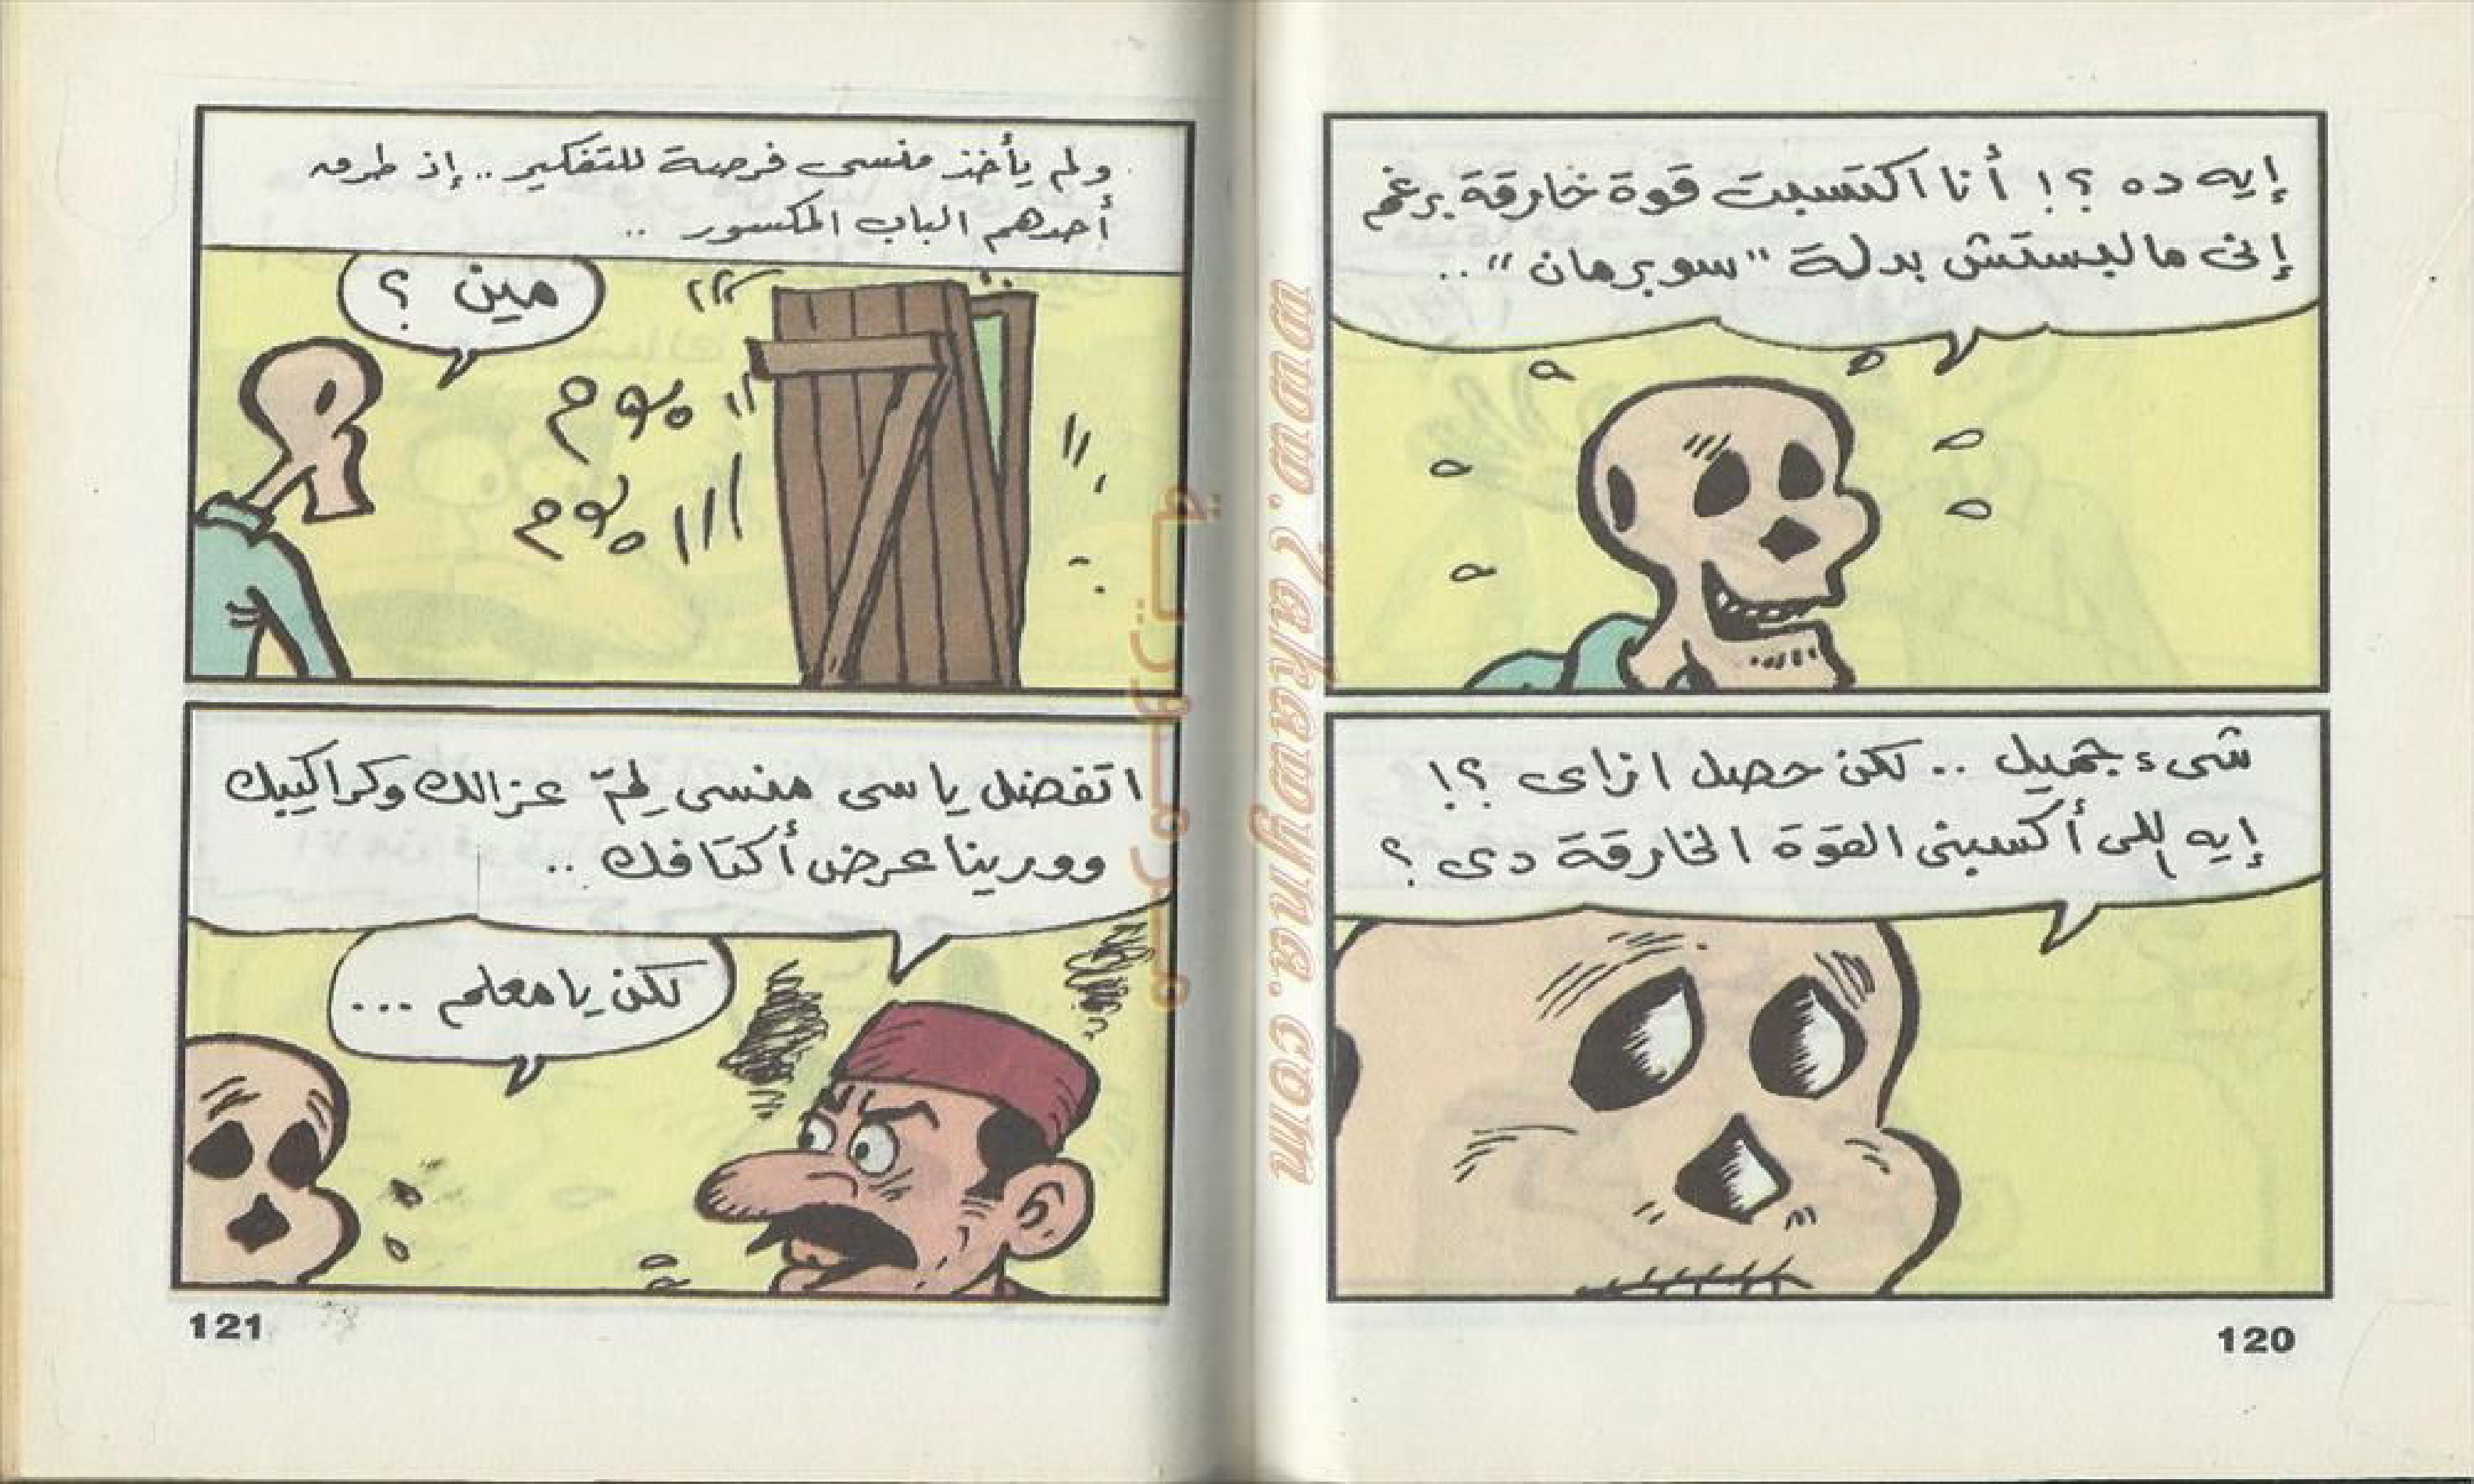 إيه ده ؟! أنا اكتسبت قوة خارقة برغم
إنى مالبستش بدلة "سوبرمان" ..
شىء جميل .. لكن حصل ازاى ؟!
إيه اللى أكسبنى القوة الخارقة دى ؟
120
ولم يأخذ منسى فرصة للتفكير .. إذ طرق
أحدهم الباب المكسور ..
مين ؟
بوم
بوم
اتفضل يا سى منسى لمّ عزالك وكراكيبك
وورينا عرض أكتافك ..
لكن يا معلم ...
121
www.7akawyna.com